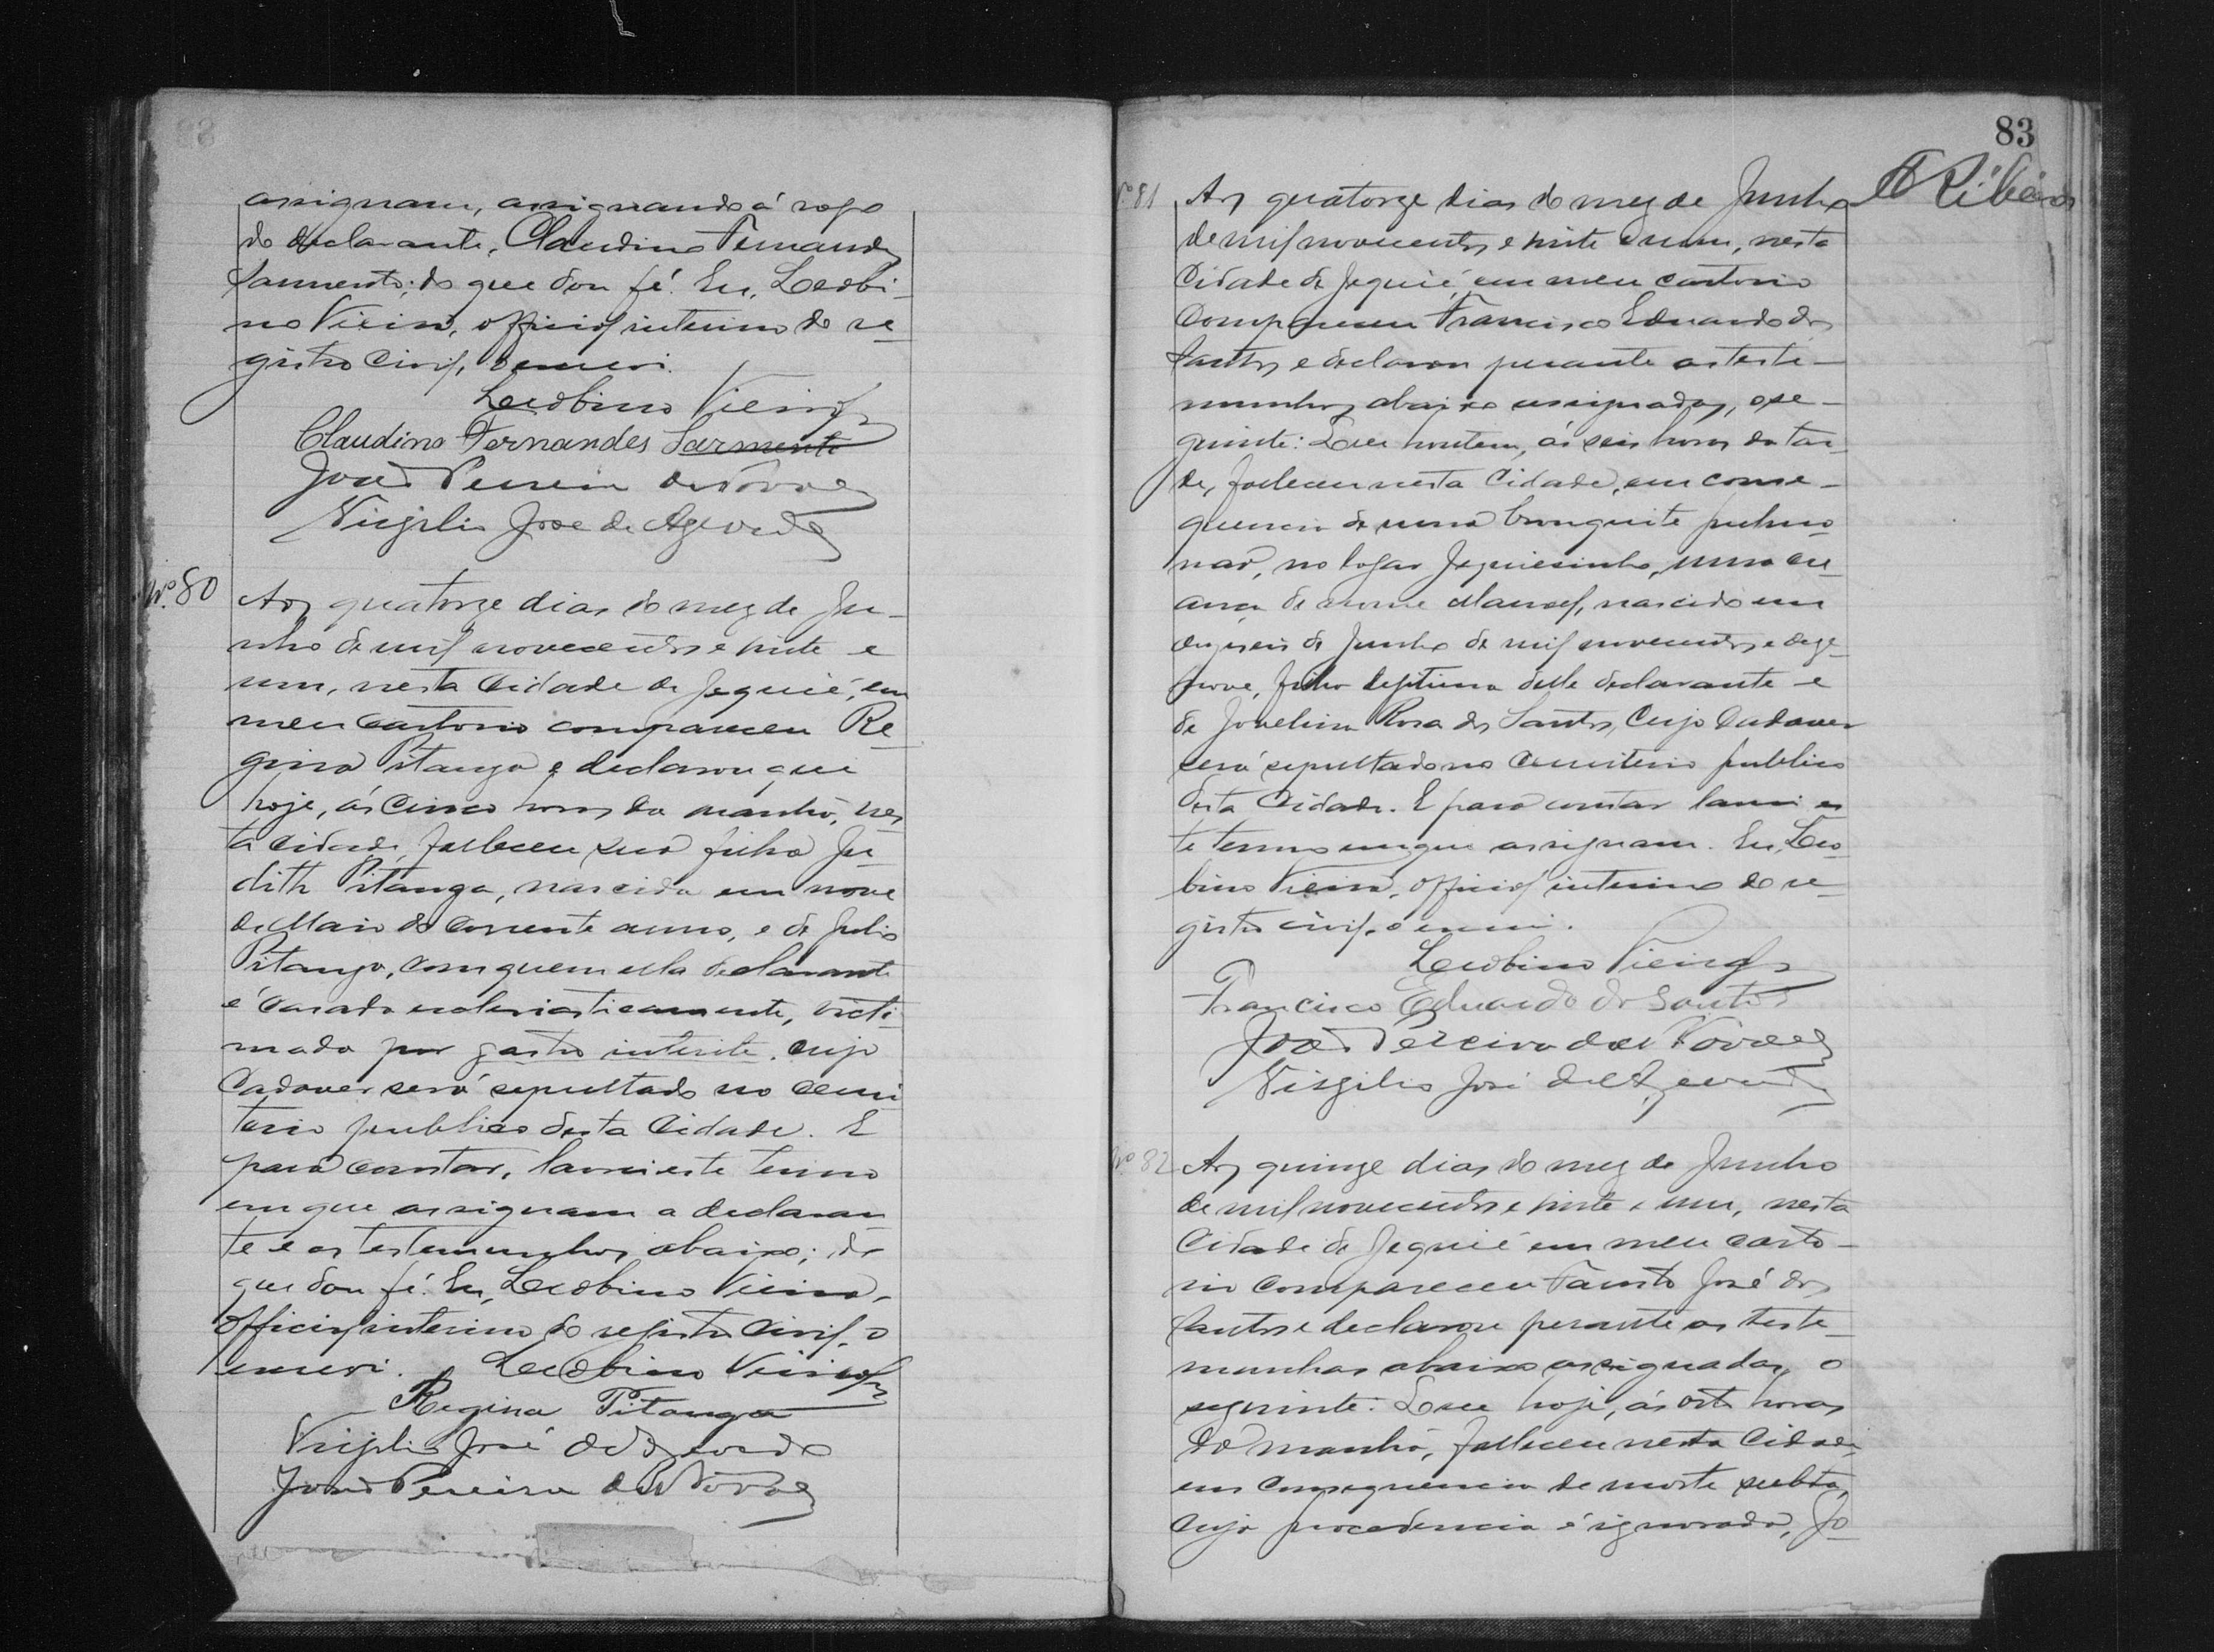 assignam, assignando á rogo
do declarante, Claudino Fernandes
Sarmento; do que dou fé. Eu, Leobi-
no Vieira, official interino do re-
gistro civil, o escrevi.
Leobino Vieira
Claudino Fernandes Sarmento
João Pereira de Novaes
Virgilio José de Azevedo
Nº 80
Aos quatorze dias do mez de Ju-
nho de mil novecentos e vinte e
um, nesta Cidade de Jequié, em
meu cartorio compareceu Re-
gina Pitanga e declarou que
hoje, ás cinco horas da manhã, nes
ta cidade, falleceu sua filha Ju
dith Pitanga, nascida em nove
de Maio do corrente anno, e de Julio
Pitanga, com quem ella declarante
é casada ecclesiasticamente, victi-
mada por gastro interite, cujo
Cadaver será sepultado no cemi
terio publico desta Cidade. E
para constar, lavrei este termo
em que assignam a declaran-
te e as testemunhas abaixo; do
que dou fé. Eu, Leobino Vieira,
Official interino do registro Civil, o
escrevi. Leobino Vieira
Regina Pitanga
Virgilio José de Azevedo
João Pereira de Novaes
83
A Ribeiro
Nº 81
Aos quatorze dias do mez de Junho
de mil novecentos e vinte e um, nesta
Cidade de Jequié, em meu cartorio
Compareceu Francisco Eduardo dos
Santos e declarou perante as teste-
munhas abaixo assignadas, o se-
guinte: Que hontem, ás seis horas da tar-
de, falleceu nesta Cidade, em conse-
quencia de uma bronquite pulmo-
nar, no logar Jequiesinho, uma cri-
ança de nome Manoel, nascido em
dezeseis de Junho de mil novecentos e deze-
nove, filho legitimo delle declarante e
de Jovelina Rosa dos Santos, Cujo Cadaver
será sepultado no Cemiterio publico
desta Cidade. E para constar lavrei es
te termo em que assignam. Eu, Leo-
bino Vieira, official interino do re-
gistro civil, o escrevi.
Leobino Vieira
Francisco Eduardo do Santos
João Pereira de Novaes
Virgilio José de Azevedo
Nº 82
Aos quinze dias do mez de Junho
de mil novecentos e vinte e um, nesta
Cidade de Jequié em meu carto-
rio compareceu Fausto José dos
Santos e declarou perante as teste-
munhas abaixo assignadas, o
seguinte: Que hoje, ás oito horas
da manhã, falleceu nesta Cidade,
em consequencia de morte subta,
cuja procedencia é ignorada, Jo-